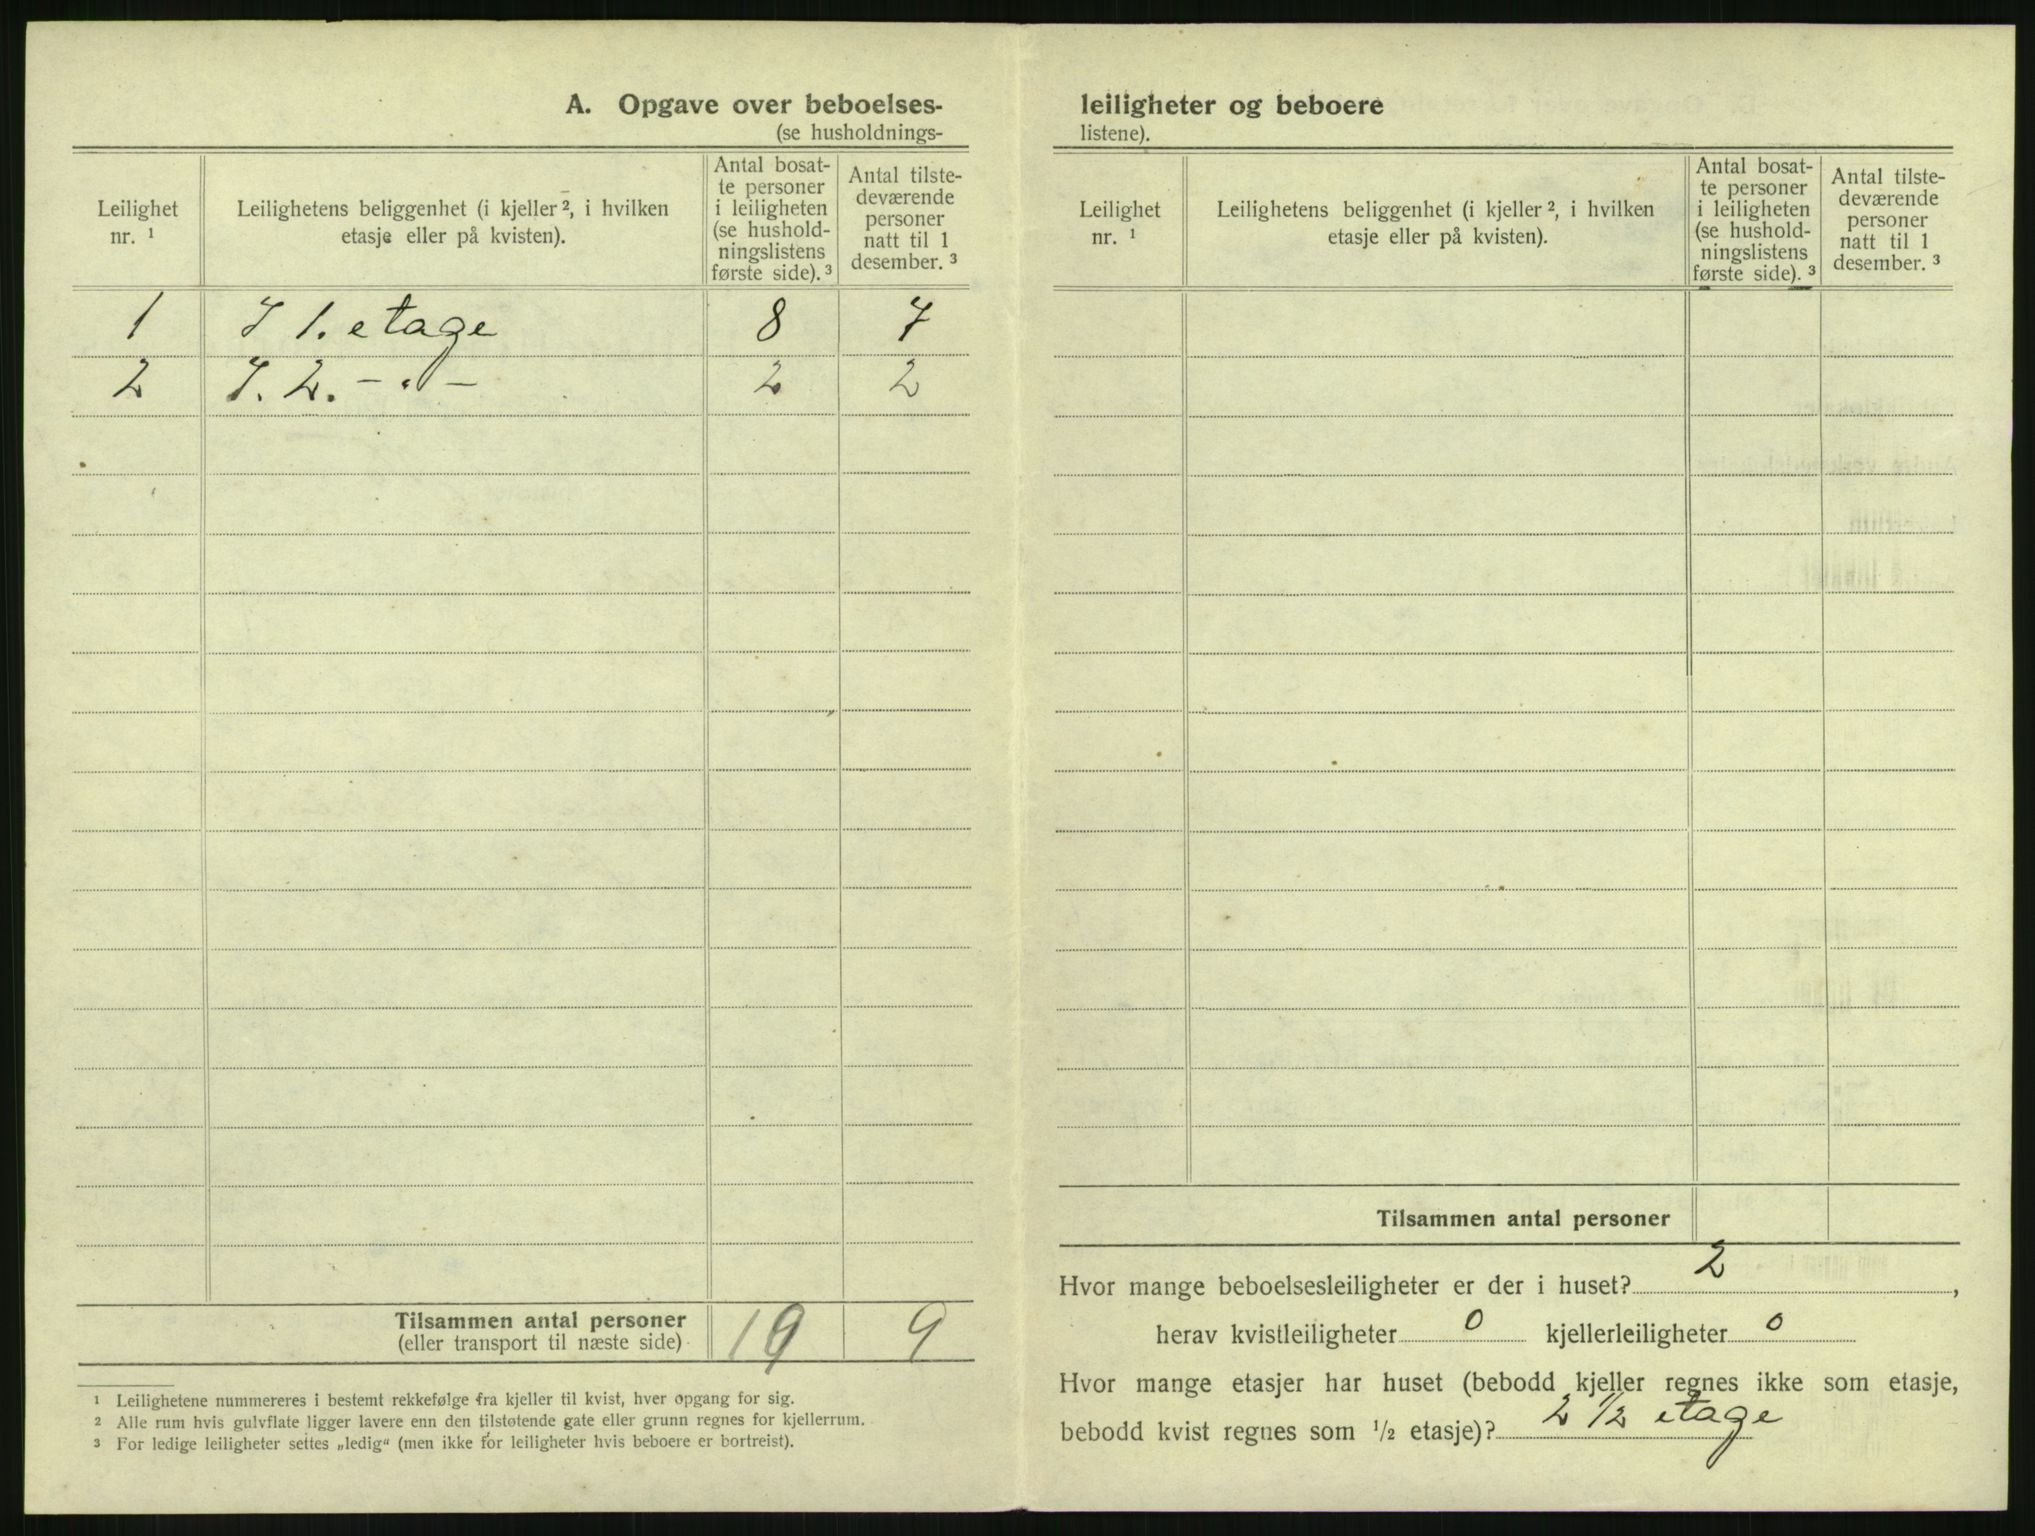 A. Opgave over beboelses-
(se husholdnings-
Leilighet
nr. 1
Leilighetens beliggenhet (i kjeller 2, i hvilken
etasje eller på kvisten).
Antal bosat-
te personer
i leiligheten
(se hushold-
ningslistens
første side). 3
Antal tilste-
deværende
personer
natt til 1
desember. 3
1 I 1. etage 8 7
2 I. 2. - . - 2 2
Tilsammen antal personer
(eller transport til næste side)
9
1 Leilighetene nummereres i bestemt rekkefølge fra kjeller til kvist, hver opgang for sig.
2 Alle rum hvis gulvflate ligger lavere enn den tilstøtende gate eller grunn regnes for kjellerrum.
3 For ledige leiligheter settes „ledig“ (men ikke for leiligheter hvis beboere er bortreist).
leiligheter og beboere
listene).
Leilighet
nr. 1
Leilighetens beliggenhet (i kjeller 2, i hvilken
etasje eller på kvisten).
Antal bosat-
te personer
i leiligheten
(se hushold-
ningslistens
første side). 3
Antal tilste-
deværende
personer
natt til 1
desember. 3
Tilsammen antal personer
Hvor mange beboelsesleiligheter er der i huset? 2,
herav kvistleiligheter 0 kjellerleiligheter 0
Hvor mange etasjer har huset (bebodd kjeller regnes ikke som etasje,
bebodd kvist regnes som 1/2 etasje)? 2 1/2 etage